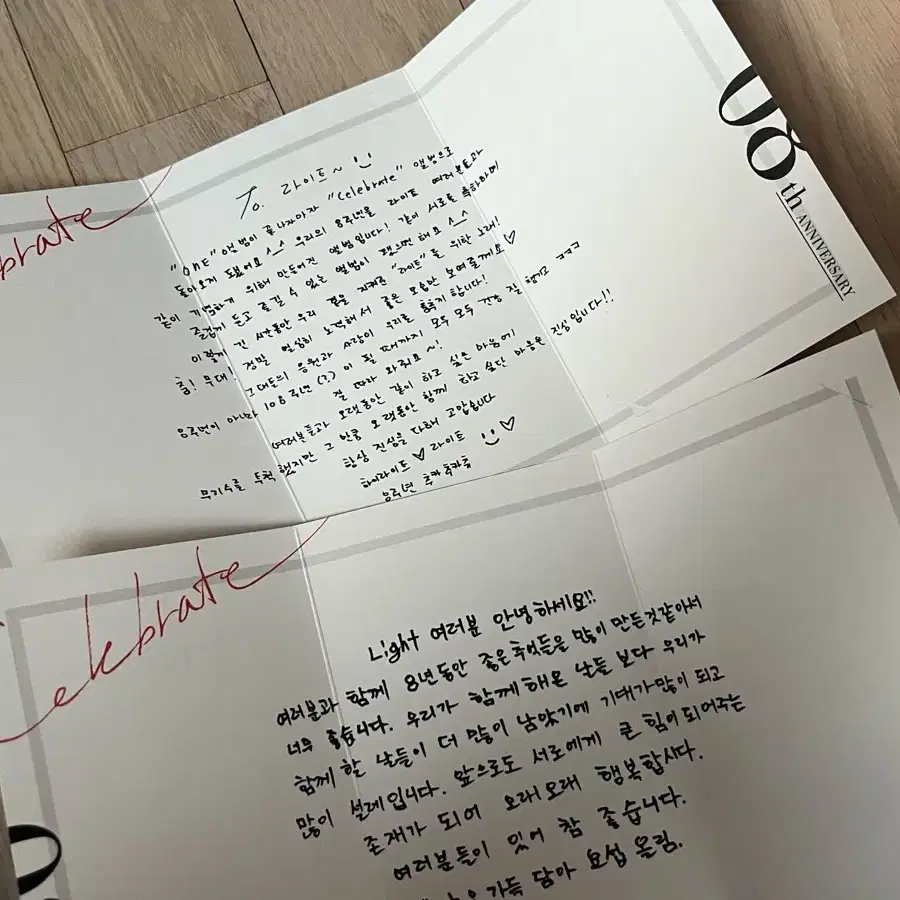 brate
To. 라이트~
"ONE" 앨범이 끝나자마자 "Celebrate" 앨범으로
돌아오게 됐어요 ^_^ 우리의 8주년을 라이트 여러분들과
같이 기념하기 위해 만들어진 앨범입니다! 같이 서로를 축하하며
즐겁게 듣고 즐길 수 있는 앨범이 됐으면 해요 ^_^
이렇게 긴 시간동안 우리 곁을 지켜준 "라이트"를 위한 노래!
춤! 무대! 정말 열심히 노력해서 좋은 모습만 보여줄께요♡
그대들의 응원과 사랑이 우리를 춤추게 합니다!
8주년이 아니라 108주년(?)이 될 때까지 모두 모두 건강 잘 챙기고 ㅋㅋㅋ
잘 따라 와줘요~!
여러분들과 오랫동안 같이 하고 싶은 마음에
무리수를 두척 했지만 그 만큼 오랫동안 함께 하고 싶단 마음은 진심입니다!!
항상 진심을 다해 고맙습니다
하이라이트♡라이트
8주년 축카축카축
08th ANNIVERSARY
Celebrate
Light 여러분 안녕하세요!!
여러분과 함께 8년동안 좋은추억들을 많이 만든것같아서
너무 좋습니다. 우리가 함께해온 날들 보다 우리가
함께 할 날들이 더 많이 남았기에 기대가많이 되고
많이 설레입니다. 앞으로도 서로에게 큰 힘이되어주는
존재가 되어 오래오래 행복합시다.
여러분들이 있어 참 좋습니다.
가득 담아 요섭 올림.
0